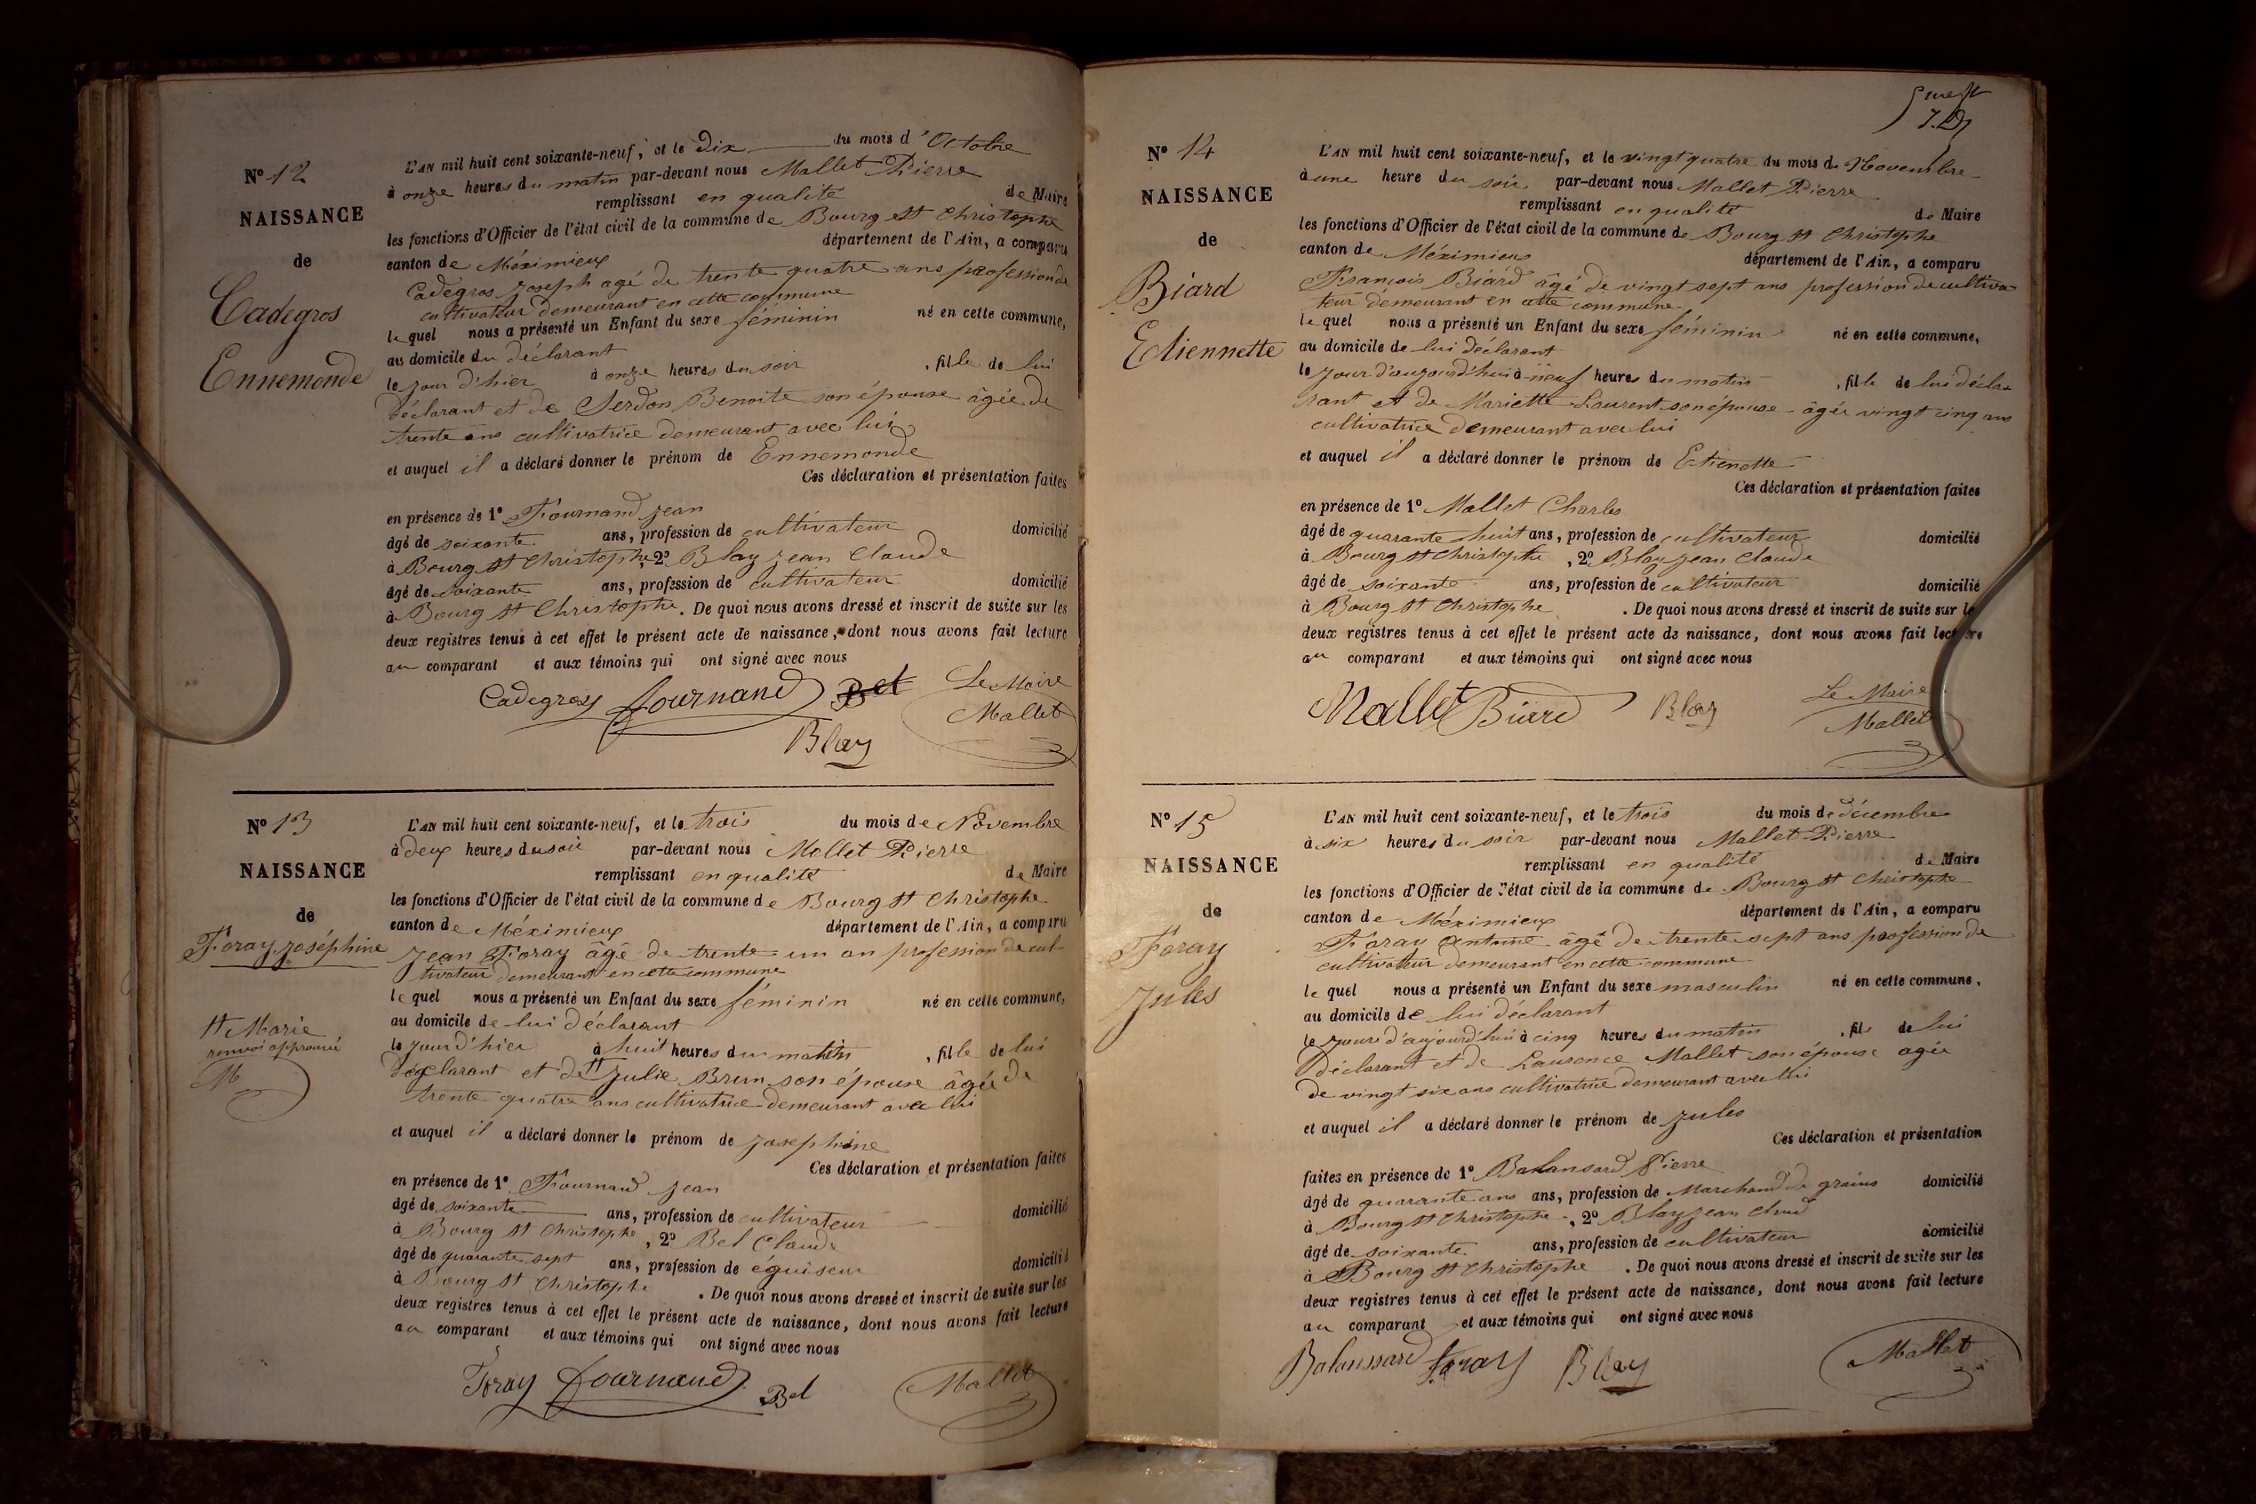 N° 12
NAISSANCE
de
Cadegros
Ennemonde
L'AN mil huit cent soixante-neuf, et le dix du mois d'Octobre
à onze heures du matin par-devant nous Mallet Pierre
remplissant en qualité de Maire
les fonctions d'Officier de l'état civil de la commune de Bourg St Christophe
canton de Méximieux département de l'Ain, a comparu
Cadegros Joseph agé de trente quatre ans profession de
cultivateur demeurant en cette commune
lequel nous a présenté un Enfant du sexe féminin né en cette commune,
au domicile du déclarant
le jour d'hier à onze heures du soir, fille de lui
déclarant et de Serdon Benoite son épouse âgée de
trente ans cultivatrice demeurant avec lui
et auquel il a déclaré donner le prénom de Ennemonde
Ces déclaration et présentation faites
en présence de 1° Fournand Jean
âgé de soixante ans, profession de cultivateur domicilié
à Bourg St Christophe, 2° Blay Jean Claude
âgé de soixante ans, profession de cultivateur domicilié
à Bourg St Christophe. De quoi nous avons dressé et inscrit de suite sur les
deux registres tenus à cet effet le présent acte de naissance, dont nous avons fait lecture
au comparant et aux témoins qui ont signé avec nous
Cadegros Fournand Bel Le Maire
Blay Mallet
N° 13
NAISSANCE
de
Foray Joséphine
H Marie
renvoi approuvé
M
L'AN mil huit cent soixante-neuf, et le trois du mois de Novembre
à deux heures du soir par-devant nous Mallet Pierre
remplissant en qualité de Maire
les fonctions d'Officier de l'état civil de la commune de Bourg St Christophe
canton de Méximieux département de l'Ain, a comparu
Jean Foray âgé de trente un an profession de cul-
tivateur demeurant en cette commune
lequel nous a présenté un Enfant du sexe féminin né en cette commune,
au domicile de lui déclarant
le jour d'hier à huit heures du matin, fille de lui
déclarant et de H Julie Brun son épouse âgée de
trente quatre ans cultivatrice demeurant avec lui
et auquel il a déclaré donner le prénom de Josephine
Ces déclaration et présentation faites
en présence de 1° Fournand Jean
âgé de soixante ans, profession de cultivateur domicilié
à Bourg St Christophe, 2° Bel Claude
âgé de quarante sept ans, profession de éguiseur domicilié
à Bourg St Christophe. De quoi nous avons dressé et inscrit de suite sur les
deux registres tenus à cet effet le présent acte de naissance, dont nous avons fait lecture
au comparant et aux témoins qui ont signé avec nous
Foray Fournand Bel Mallet
N° 14
NAISSANCE
de
Biard
Etiennette
L'AN mil huit cent soixante-neuf, et le vingt quatre du mois de Novembre
à une heure du soir par-devant nous Mallet Pierre
remplissant en qualité de Maire
les fonctions d'Officier de l'état civil de la commune de Bourg St Christophe
canton de Méximieux département de l'Ain, a comparu
François Biard âgé de vingt sept ans profession de cultiva-
teur demeurant en cette commune
lequel nous a présenté un Enfant du sexe féminin né en cette commune,
au domicile de lui déclarant
le jour d'aujourd'hui à neuf heures du matin, fille de lui décla-
rant et de Mariette Laurent son épouse âgée vingt cinq ans
cultivatrice demeurant avec lui
et auquel il a déclaré donner le prénom de Etienette
Ces déclaration et présentation faites
en présence de 1° Mallet Charles
âgé de quarante huit ans, profession de cultivateur domicilié
à Bourg St Christophe, 2° Blay Jean Claude
âgé de soixante ans, profession de cultivateur domicilié
à Bourg St Christophe. De quoi nous avons dressé et inscrit de suite sur les
deux registres tenus à cet effet le présent acte de naissance, dont nous avons fait lecture
au comparant et aux témoins qui ont signé avec nous
Mallet Biard Blay Le Maire
Mallet
N° 15
NAISSANCE
de
Foray
Jules
L'AN mil huit cent soixante-neuf, et le trois du mois de décembre
à six heures du soir par-devant nous Mallet Pierre
remplissant en qualité de Maire
les fonctions d'Officier de l'état civil de la commune de Bourg St Christophe
canton de Méximieux département de l'Ain, a comparu
Foray Antoine âgé de trente sept ans profession de
cultivateur demeurant en cette commune
lequel nous a présenté un Enfant du sexe masculin né en cette commune,
au domicile de lui déclarant
le jour d'aujourd'hui à cinq heures du matin, fils de lui
déclarant et de Laurence Mallet son épouse agée
de vingt six ans cultivatrice demeurant avec lui
et auquel il a déclaré donner le prénom de Jules
Ces déclaration et présentation
faites en présence de 1° Balansard Pierre
âgé de quarante ans ans, profession de Marchand de grains domicilié
à Bourg St Christophe, 2° Blay Jean Claud
âgé de soixante ans, profession de cultivateur domicilié
à Bourg St Christophe. De quoi nous avons dressé et inscrit de suite sur les
deux registres tenus à cet effet le présent acte de naissance, dont nous avons fait lecture
au comparant et aux témoins qui ont signé avec nous
Balanssard Foray Blay Mallet